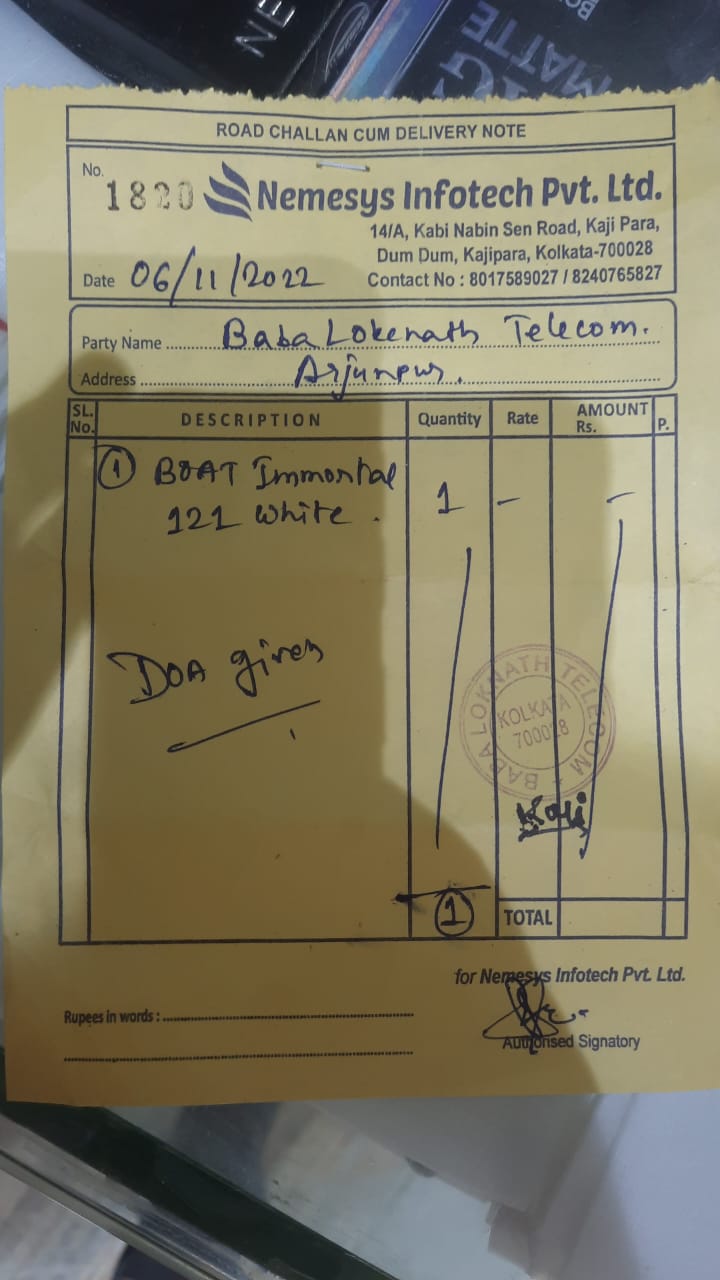 NE
MATTE
ROAD CHALLAN CUM DELIVERY NOTE
No. 1820
Nemesys Infotech Pvt. Ltd.
14/A, Kabi Nabin Sen Road, Kaji Para,
Dum Dum, Kajipara, Kolkata-700028
Contact No : 8017589027 / 8240765827
Date 06/11/2022
Party Name Baba Lokenath Telecom.
Address Arjunpur.
SL. No. DESCRIPTION Quantity Rate AMOUNT Rs. P.
① BOAT Immortal 1 – –
121 White.
DOA given
BABA LOKNATH TELECOM
KOLKATA
700028
① TOTAL
for Nemesys Infotech Pvt. Ltd.
Rupees in words :
Authorised Signatory